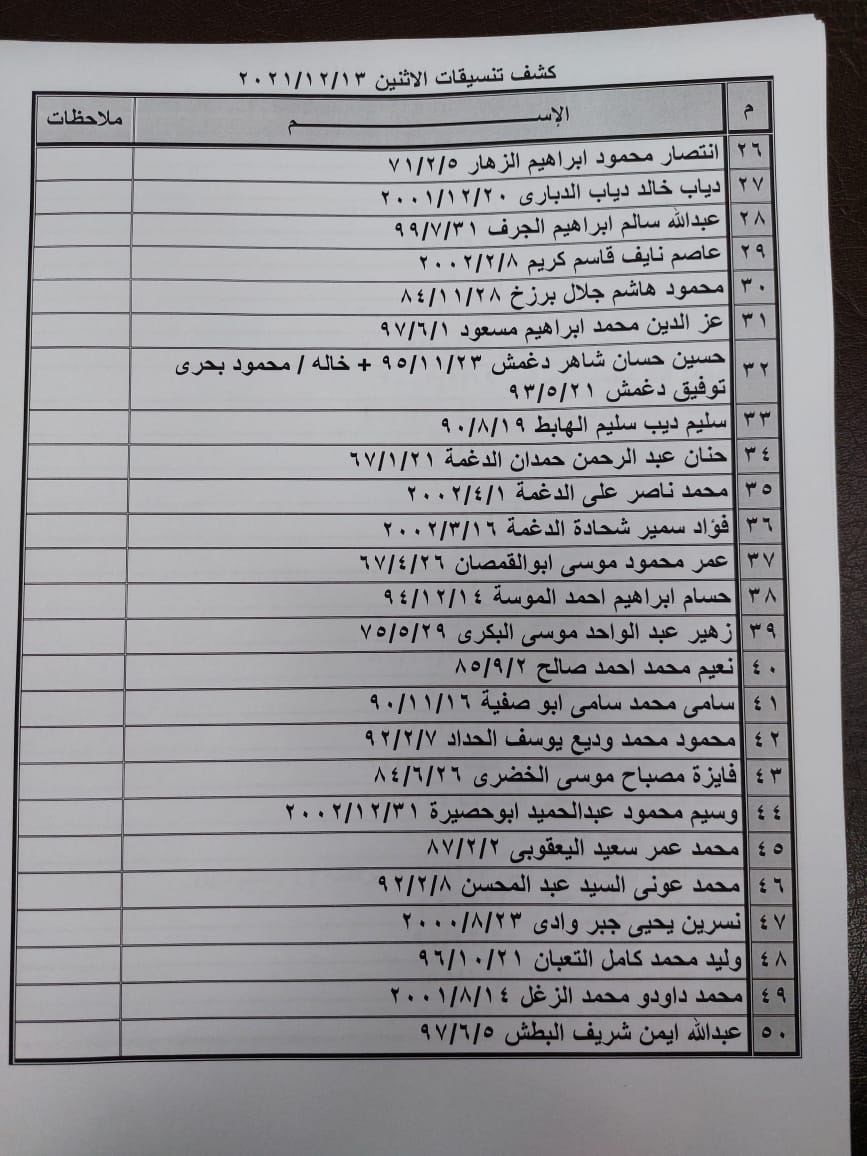 كشف تنسيقات الاثنين ٢٠٢١/١٢/١٣
م الإســـــــم ملاحظات
٢٦ انتصار محمود ابراهيم الزهار ٧١/٢/٥
٢٧ دياب خالد دياب الدبارى ٢٠٠١/١٢/٢٠
٢٨ عبدالله سالم ابراهيم الجرف ٩٩/٧/٣١
٢٩ عاصم نايف قاسم كريم ٢٠٠٢/٢/٨
٣٠ محمود هاشم جلال برزخ ٨٤/١١/٢٨
٣١ عز الدين محمد ابراهيم مسعود ٩٧/٦/١
٣٢ حسين حسان شاهر دغمش ٩٥/١١/٢٣ + خاله / محمود بحرى
توفيق دغمش ٩٣/٥/٢١
٣٣ سليم ديب سليم الهابط ٩٠/٨/١٩
٣٤ حنان عبد الرحمن حمدان الدغمة ٦٧/١/٢١
٣٥ محمد ناصر على الدغمة ٢٠٠٢/٤/١
٣٦ فؤاد سمير شحادة الدغمة ٢٠٠٢/٣/١٦
٣٧ عمر محمود موسى ابوالقمصان ٦٧/٤/٢٦
٣٨ حسام ابراهيم احمد الموسة ٩٤/١٢/١٤
٣٩ زهير عبد الواحد موسى البكرى ٧٥/٥/٢٩
٤٠ نعيم محمد احمد صالح ٨٥/٩/٢
٤١ سامى محمد سامى ابو صفية ٩٠/١١/١٦
٤٢ محمود محمد وديع يوسف الحداد ٩٢/٢/٧
٤٣ فايزة مصباح موسى الخضرى ٨٤/٦/٢٦
٤٤ وسيم محمود عبدالحميد ابوحصيرة ٢٠٠٢/١٢/٣١
٤٥ محمد عمر سعيد اليعقوبى ٨٧/٢/٢
٤٦ محمد عونى السيد عبد المحسن ٩٢/٢/٨
٤٧ نسرين يحيى جبر وادى ٢٠٠٠/٨/٢٣
٤٨ وليد محمد كامل التعبان ٩٦/١٠/٢١
٤٩ محمد داودو محمد الزغل ٢٠٠١/٨/١٤
٥٠ عبدالله ايمن شريف البطش ٩٧/٦/٥